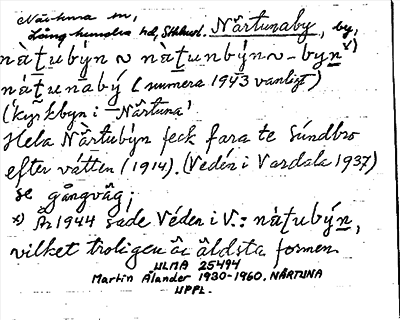 Närtuna sn,
Långhundra hd, Sthlms l. Närtunaby, by,
nàṯubýn ~ nàṯunbýn ~ -byṉ x)
náṯunabý (numera 1943 vanligt)
(kyrkbyn i Närtuna)
Hela Närtubýn feck fara te Súndbro
efter vátten (1914). (Vedén i Vardala 1937)
se gångväg;
x) År 1944 sade Véden i V.: nàṯubýṉ,
vilket troligen är äldsta formen
ULMA 25494
Martin Ålander 1930-1960. NÄRTUNA
UPPL.